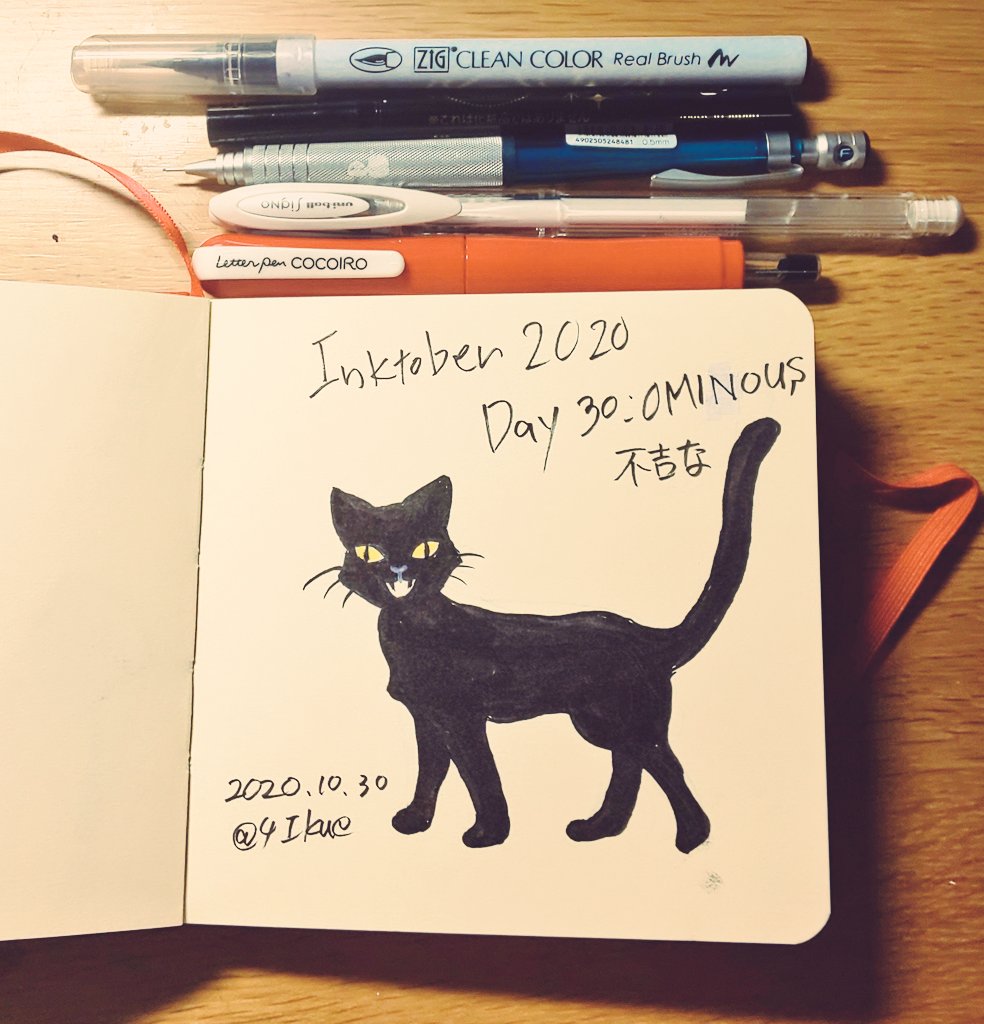 ZIG CLEAN COLOR Real Brush
※これは化粧品ではありません
4902505248481 0.5mm
uni-ball Signo
Letter pen COCOIRO
Inktober 2020
Day 30: OMINOUS
不吉な
2020.10.30
@4Ikue